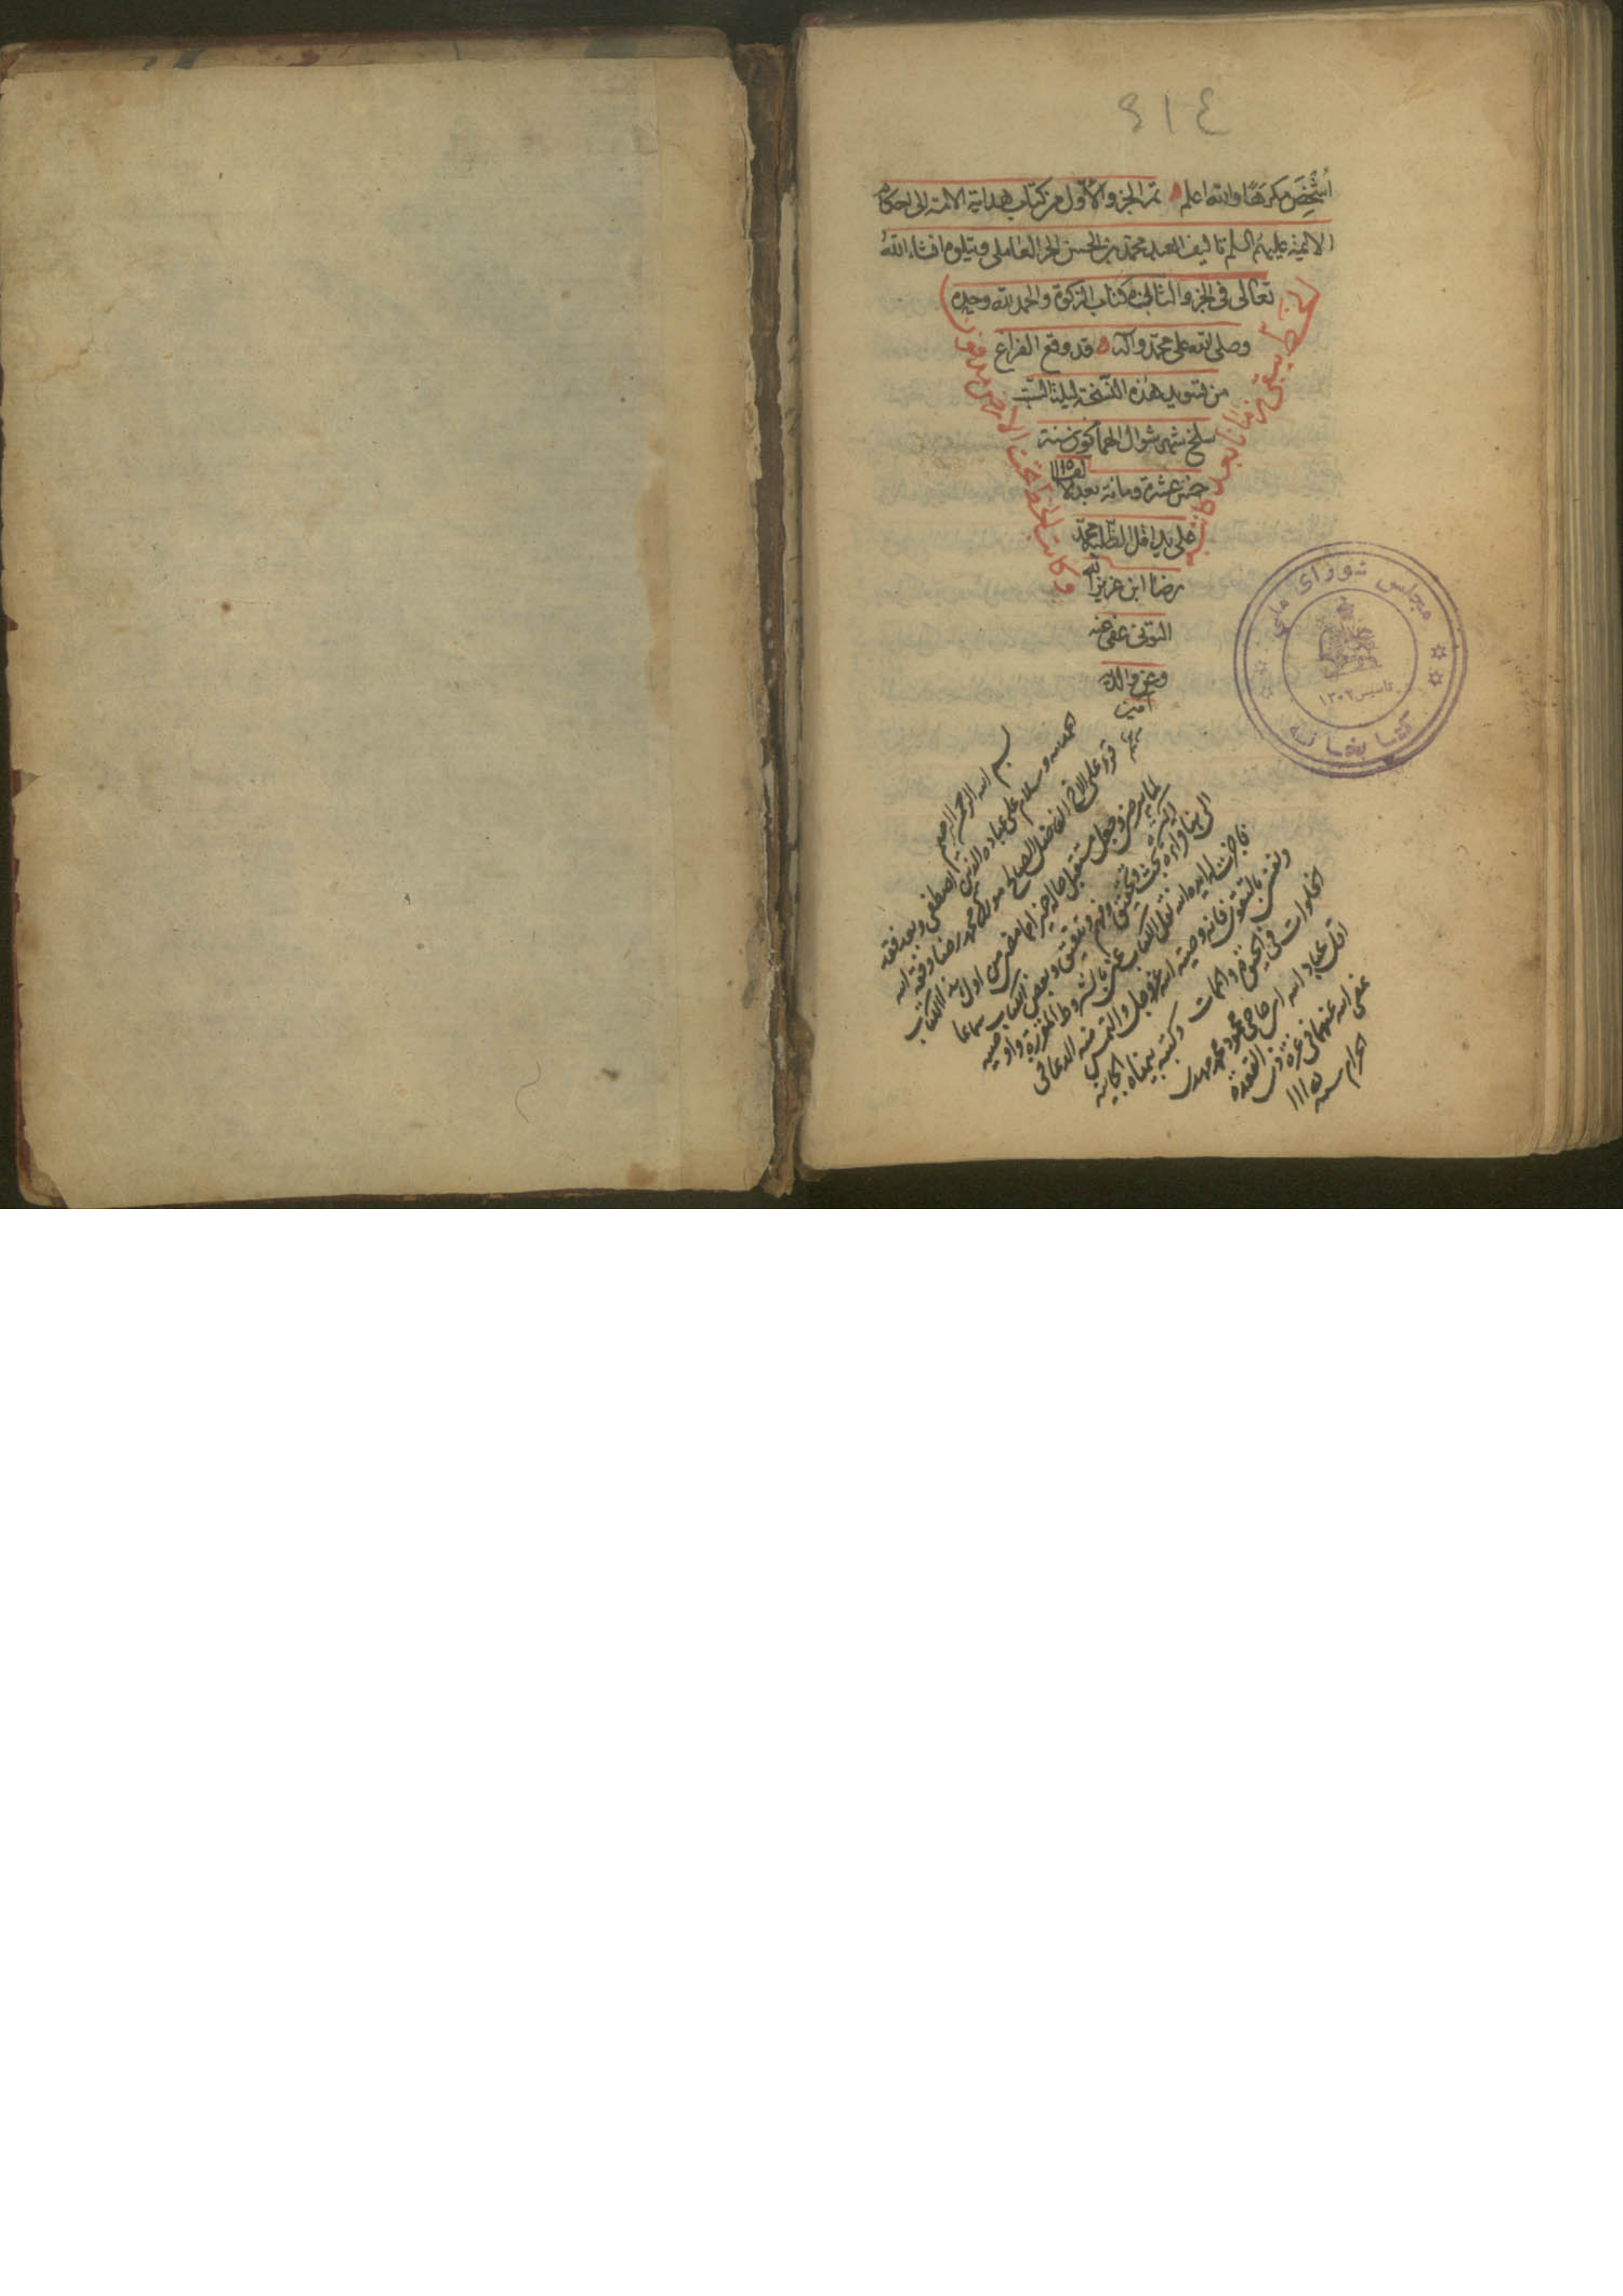 ٩١٤
مكرها والله اعلم تم الجزو الأول من كتاب هداية الامة الى احكام
الائمة عليهم السلم تاليف العبد محمد بن الحسن الحر العاملى ويتلوه انشاء الله
تعالى فى الجزو الثانى كتاب الزكوة والحمد لله وحده
وصلى الله على محمد وآله قد وقع الفراغ
من تسويد هذه النسخة ليلة السبت
سلخ شهر شوال سنة
خمس عشرة ومائة بعد الالف ١١١٥
على يد اقل الطلبة محمد
رضا ابن عزيز الله
التونى عفى عنه
وعن والديه
آمين
الخط يبقى زمانا بعد كاتبه
وكاتب الخط تحت الارض مدفون
بسم الله الرحمن الرحيم
الحمد لله وسلام على عباده الذين اصطفى وبعد فقد
قرء على الاخ الفاضل الصالح مولانا محمد رضا وفقه الله
لمايرضى وجعل مستقبل حاله خيرا مما مضى من اول هذا الكتاب
الى هنا قراءة بحث وتحقيق وفهم وتدقيق وبعض الكتاب سماعا
فاجزت له ايده الله نقل الكتاب عنى بالشروط المقررة واوصيه
ونفسى بالتقوى فانه وصية الله عز وجل والتمس منه الدعا فى
الخلوات فى الحيوة والممات وكتبه بيمناه الجانية
اقل عباد الله ابن حاجى محمود محمد مهدى
عفى الله عنهما فى غرة ذى القعدة
الحرام سنة
مجلس شورای ملی
تاسیس ۱۳۰۲
کتابخانه